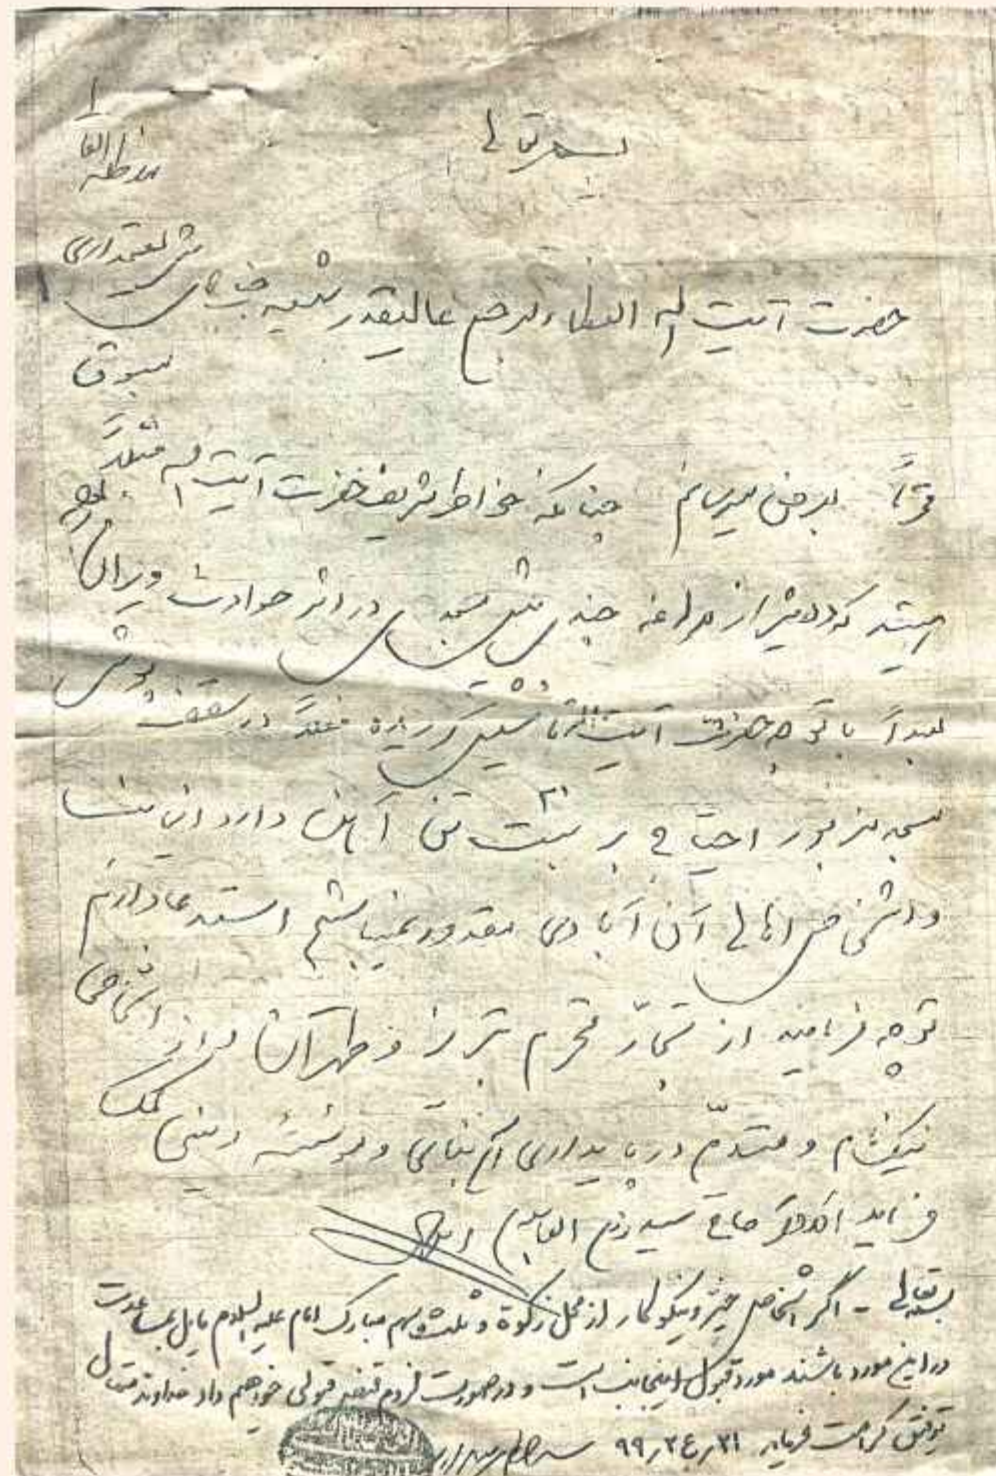 بسمه تعالی
حضرت آیت اله العظماء مرجع عالیقدر شیعه جناب آقای شریعتمداری
مد ظله العا
محترماً بعرض میرسانم چنانکه خاطر شریف حضرت آیت اله مسبوق
میباشد که ده از مراغه در اثر حوادث ویران
بعداً با توجه حضرت آیت اله تأسیس گردیده فعلاً در سقف پوشی
مسجد مزبور احتیاج بر بیست ۲۰ تن آهن دارد این
و اشخاص اهالی آن آبادی مقدور نمیباشیم استدعا دارم
توجه فرمایید از تجار محترم تبریز و طهران و از اشخاص
نیکنام و متدین در پایداری آن دینی کمک
فرمایید الاحقر حاج سید زین العابدین
بسمه تعالی - اگر اشخاص خیر و نیکوکار از محل زکوة و ثلث سهم مبارک امام علیه السلام مایل بمساعدت
در این مورد باشند مورد قبول اینجانب است و در صورت لزوم قبض قبولی خواهم داد خداوند متعال
توفیق کرامت فرماید ۲۱ ر ع ۲ ر ۹۹